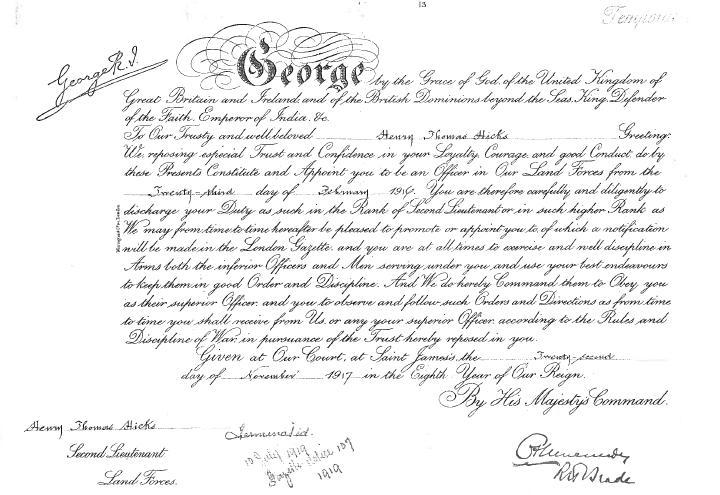 13
Temporary.
George R. I.
George by the Grace of God, of the United Kingdom of
Great Britain and Ireland, and of the British Dominions beyond the Seas, King, Defender
of the Faith, Emperor of India, &c.
To Our Trusty and well beloved Henry Thomas Hicks Greeting:
We, reposing especial Trust and Confidence in your Loyalty, Courage, and good Conduct, do by
these Presents Constitute and Appoint you to be an Officer in Our Land Forces from the
Twenty-third day of February 191 . You are therefore carefully and diligently to
discharge your Duty as such in the Rank of Second Lieutenant or in such higher Rank as
We may from time to time hereafter be pleased to promote or appoint you to, of which a notification
will be made in the London Gazette, and you are at all times to exercise and well discipline in
Arms both the inferior Officers and Men serving under you and use your best endeavours
to keep them in good Order and Discipline. And We do hereby Command them to Obey you
as their superior Officer, and you to observe and follow such Orders and Directions as from time
to time you shall receive from Us, or any your superior Officer, according to the Rules and
Discipline of War, in pursuance of the Trust hereby reposed in you.
Given at Our Court, at Saint James's, the Twenty-second
day of November 1917 in the Eighth Year of Our Reign.
By His Majesty's Command.
Henry Thomas Hicks
Second Lieutenant
Land Forces.
Terminated.
July 1919
Gazette
1919
R H Brade